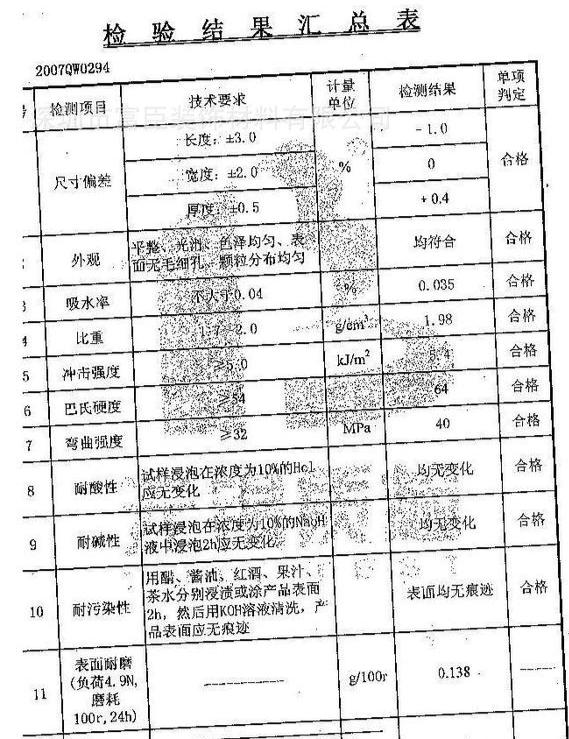 检验结果汇总表
2007QW0294
检测项目 技术要求 计量单位 检测结果 单项判定
尺寸偏差 长度：±3.0 % -1.0 合格
宽度：±2.0 0
厚度：±0.5 +0.4
外观 平整、光滑、色泽均匀、表
面无毛细孔、颗粒分布均匀 均符合 合格
3 吸水率 不大于0.04 % 0.035 合格
4 比重 1.7 2.0 g/cm³ 1.98 合格
5 冲击强度 ≥5.0 kJ/m² 合格
6 巴氏硬度 ≥54 64 合格
7 弯曲强度 ≥32 MPa 40 合格
8 耐酸性 试样浸泡在浓度为10%的Hcl
应无变化 均无变化 合格
9 耐碱性 试样浸泡在浓度为10%的NaoH
液中浸泡2h应无变化 均无变化 合格
10 耐污染性 用醋、酱油、红酒、果汁、
茶水分别浸渍或涂产品表面
2h，然后用KOH溶液清洗，产
品表面应无痕迹 表面均无痕迹 合格
11 表面耐磨
(负荷4.9N,
磨耗
100r,24h) ———— g/100r 0.138 ——